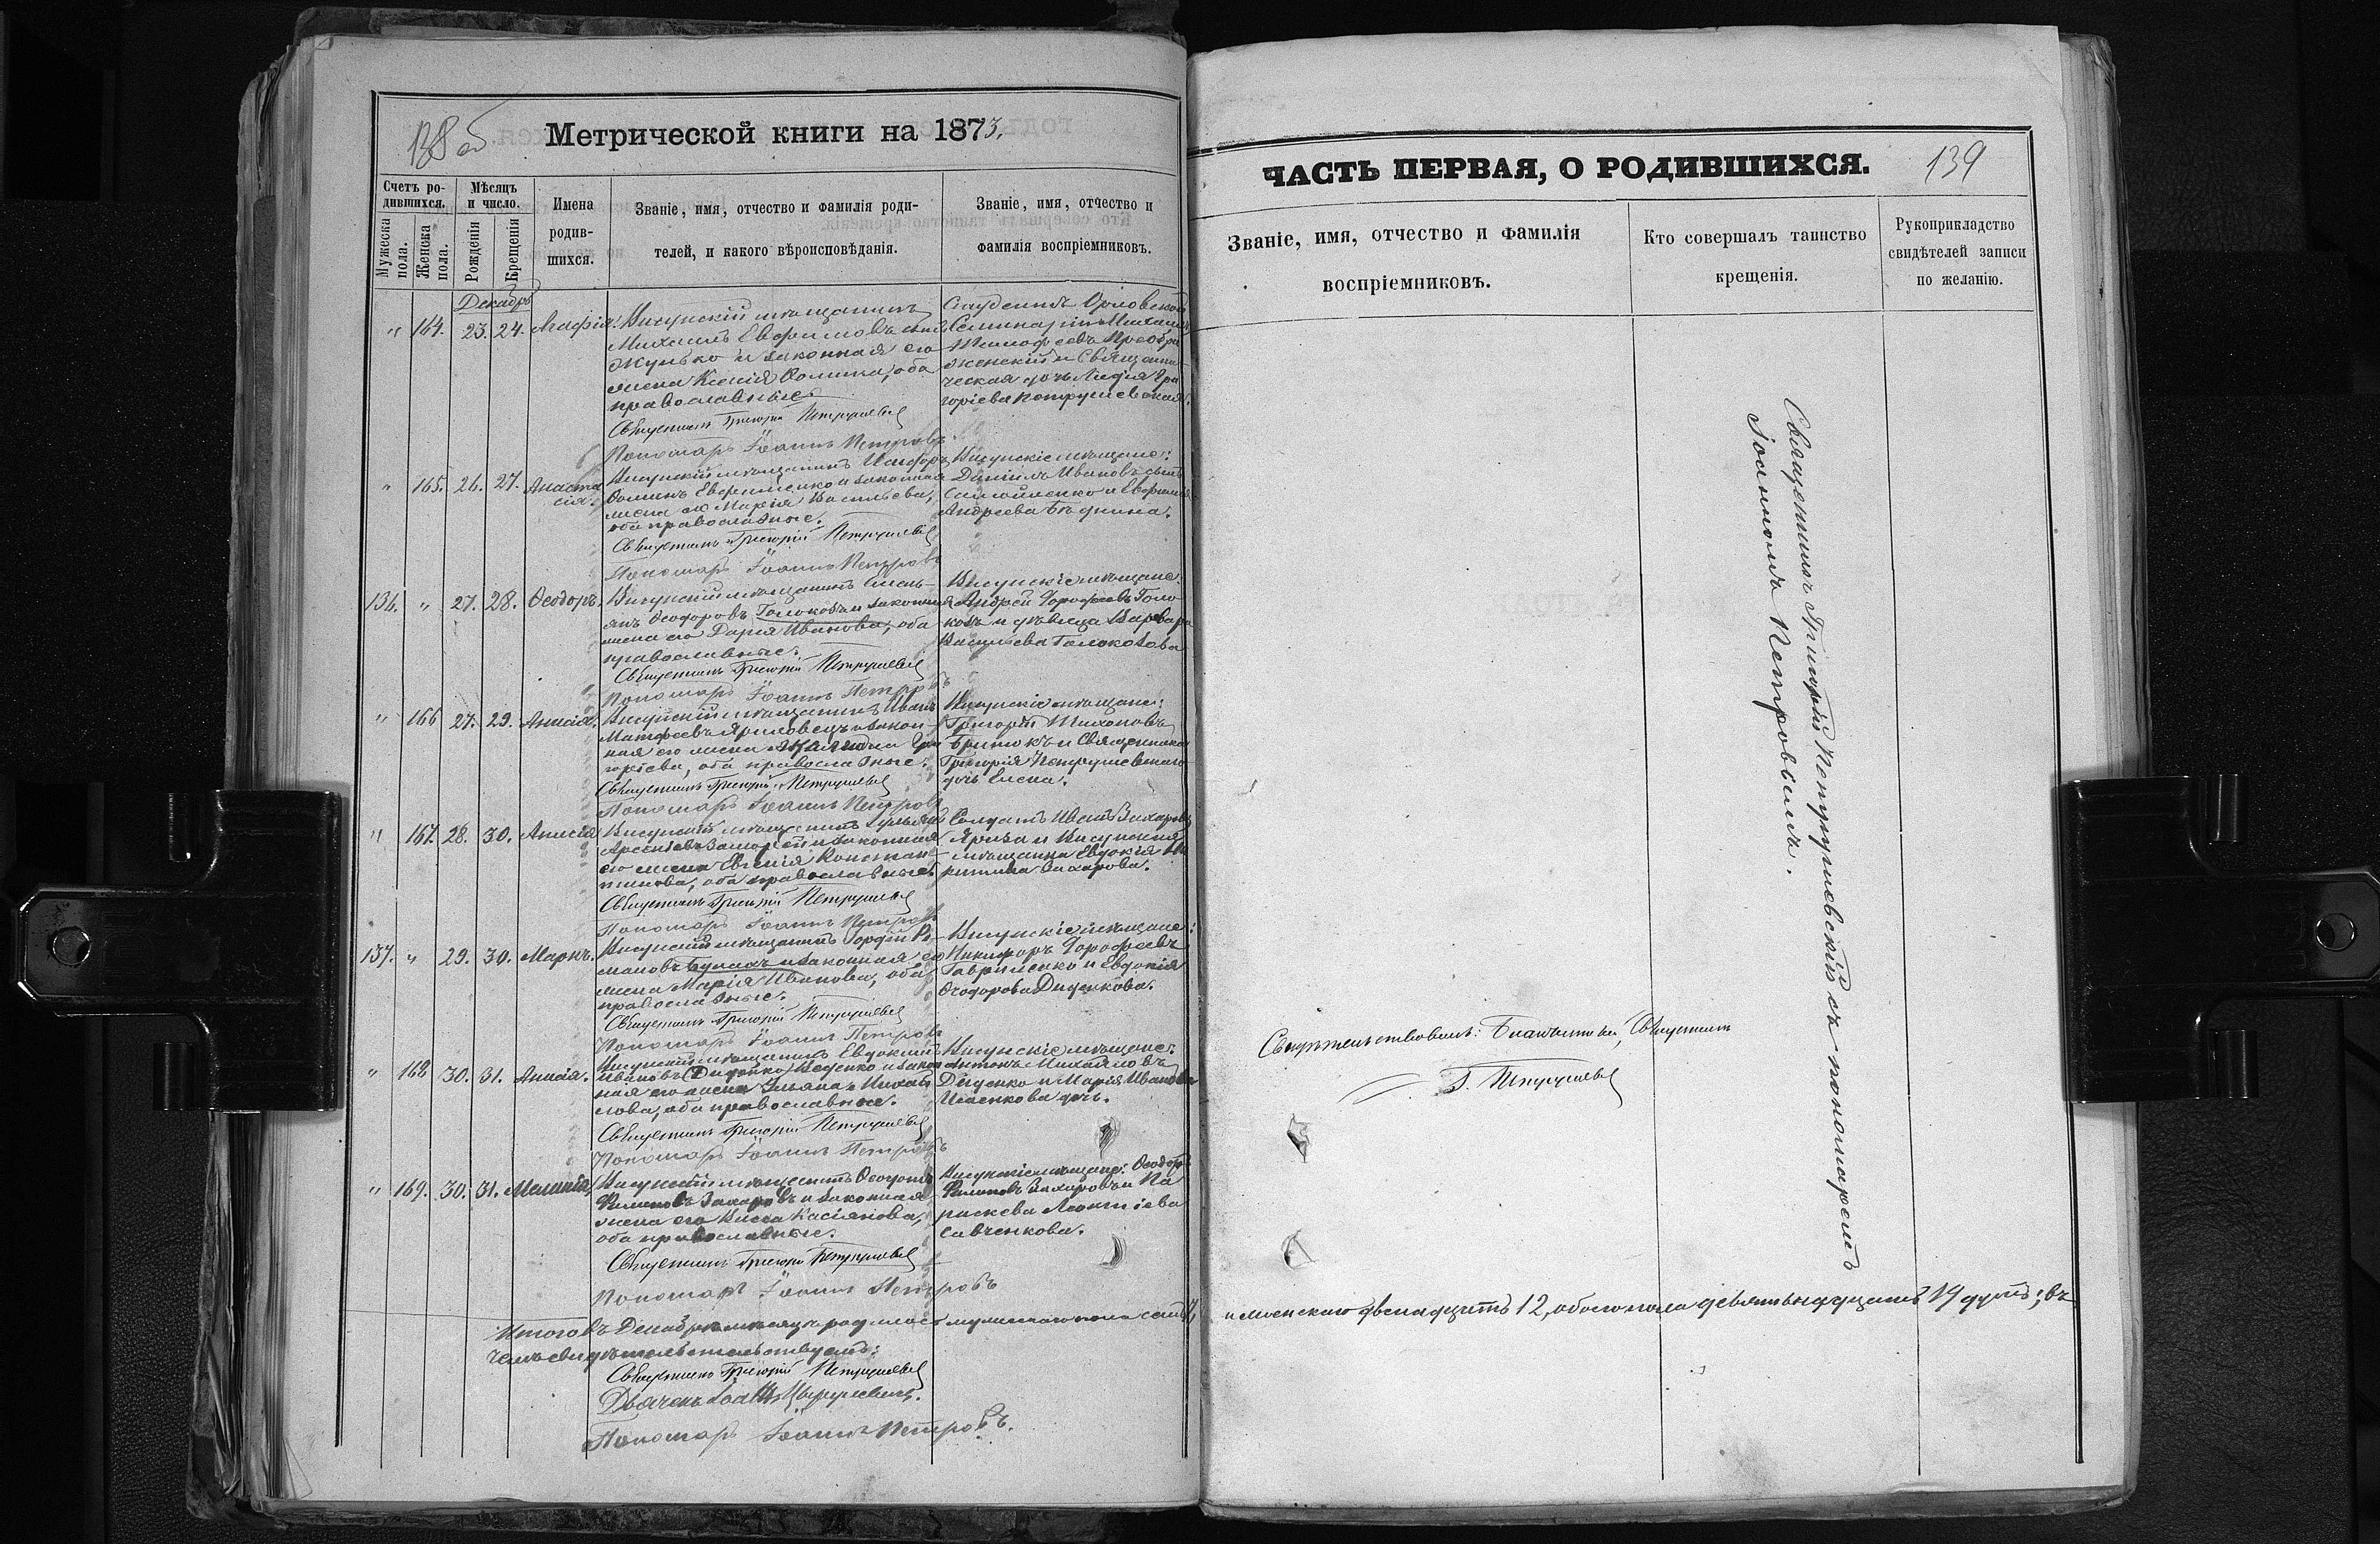 138 об
Метрической книги на 1873.
Счетъ ро-
дившихся.
Мужеска пола.
Женска пола.
Мѣсяцъ
и число.
Рожденія
Крещенія
Имена
родив-
шихся.
Званіе, имя, отчество и фамилія роди-
телей, и какого вѣроисповѣданія.
Званіе, имя, отчество и
фамилія воспріемниковъ.
Декабрь
" 164. 23. 24.
Висунскій мѣщанинъ
Михаилъ Евфимовъ сынъ
Жунько и законная его
жена Ксенія Фомина, оба
православные.
Священникъ Григорій Петрушевскій
Пономарь Іоаннъ Петровъ.
Студентъ Орловской
Семинаріи Михаилъ
Тимофеевъ Преобра
женскій и Священни
ческая дочь Лидія Гри
горіева Петрушевская.
" 165. 26. 27. Анаста
сія.
Висунскій мѣщанинъ
Фоминъ Евфименко и законная
жена его Марія Васильева,
оба православные.
Священникъ Григорій Петрушевскій
Пономарь Іоаннъ Петровъ
Висунскіе мѣщане:
Даніилъ Ивановъ сынъ
Самойленко и Евфимія
Андреева
136. " 27. 28. Ѳеодоръ.
Висунскій мѣщанинъ Емель-
янъ Ѳеодоровъ Голоковъ и законная
жена его Дарія Иванова, оба
православные.
Священникъ Григорій Петрушевскій
Пономарь Іоаннъ Петровъ
Висунскіе мѣщане:
Андрей Дорофеевъ Голо-
ковъ и дѣвица Варвара
Васильева Голокова
" 166 27. 29. Анисія.
Висунскій мѣщанинъ Иванъ
Матфеевъ Яриловецъ и закон-
ная его жена Гри
горіева, оба православные.
Священникъ Григорій Петрушевскій
Пономарь Іоаннъ Петровъ
Висунскіе мѣщане:
Григорій Тихоновъ
и Священника
Григорія Петрушевскаго
дочь Елена.
" 167. 28. 30. Анисія
Висунскій мѣщанинъ
Арсентьевъ и законная
его жена Евгенія Констан-
тинова, оба православные.
Священникъ Григорій Петрушевскій
Пономарь Іоаннъ Петровъ
Солдатъ Иванъ Захаровъ
и Висунская
мѣщанка Евдокія Ни
китина Захарова.
137. " 29. 30. Маркъ.
Висунскій мѣщанинъ Гордѣй Ро-
мановъ и законная его
жена Марія Иванова, оба
православные.
Священникъ Григорій Петрушевскій
Пономарь Іоаннъ Петровъ
Висунскіе мѣщане:
Никифоръ Дорофеевъ
Гавриленко и Евдокія
Ѳеодорова Диденкова.
" 168 30. 31. Анисія.
Висунскій мѣщанинъ Евдокимъ
Ивановъ (Диденко) и закон
ная его жена Ульяна Михай
лова, оба православные.
Священникъ Григорій Петрушевскій
Пономарь Іоаннъ Петровъ
Висунскіе мѣщане:
Антонъ Михайловъ
Диденко и Марія Иванова
дочь.
" 169. 30. 31. Меланія
Висунскій мѣщанинъ
Филиповъ Захаровъ и законная
жена его Васса Касіянова,
оба православные.
Священникъ Григорій Петрушевскій
Пономарь Іоаннъ Петровъ
Висунскіе мѣщане: Ѳеодоръ
Филиповъ Захаровъ и Па
раскева Леонтіева
Савченкова.
Итого въ Декабрѣ мѣсяцѣ родилось мужескаго пола семь 7,
чемъ свидѣтельствуемъ:
Священникъ Григорій Петрушевскій
Дьячекъ
Пономарь Іоаннъ Петровъ.
ЧАСТЬ ПЕРВАЯ, О РОДИВШИХСЯ.
139
Званіе, имя, отчество и фамилія
воспріемниковъ.
Кто совершалъ таинство
крещенія.
Рукоприкладство
свидѣтелей записи
по желанію.
Священникъ Григорій Петрушевскій съ пономаремъ
Іоанномъ Петровымъ.
Свидѣтельствовалъ: Благочинный, Священникъ
Г. Петрушевскій
и женскаго двенадцать 12, обоего пола девятнадцать 19 душъ; въ